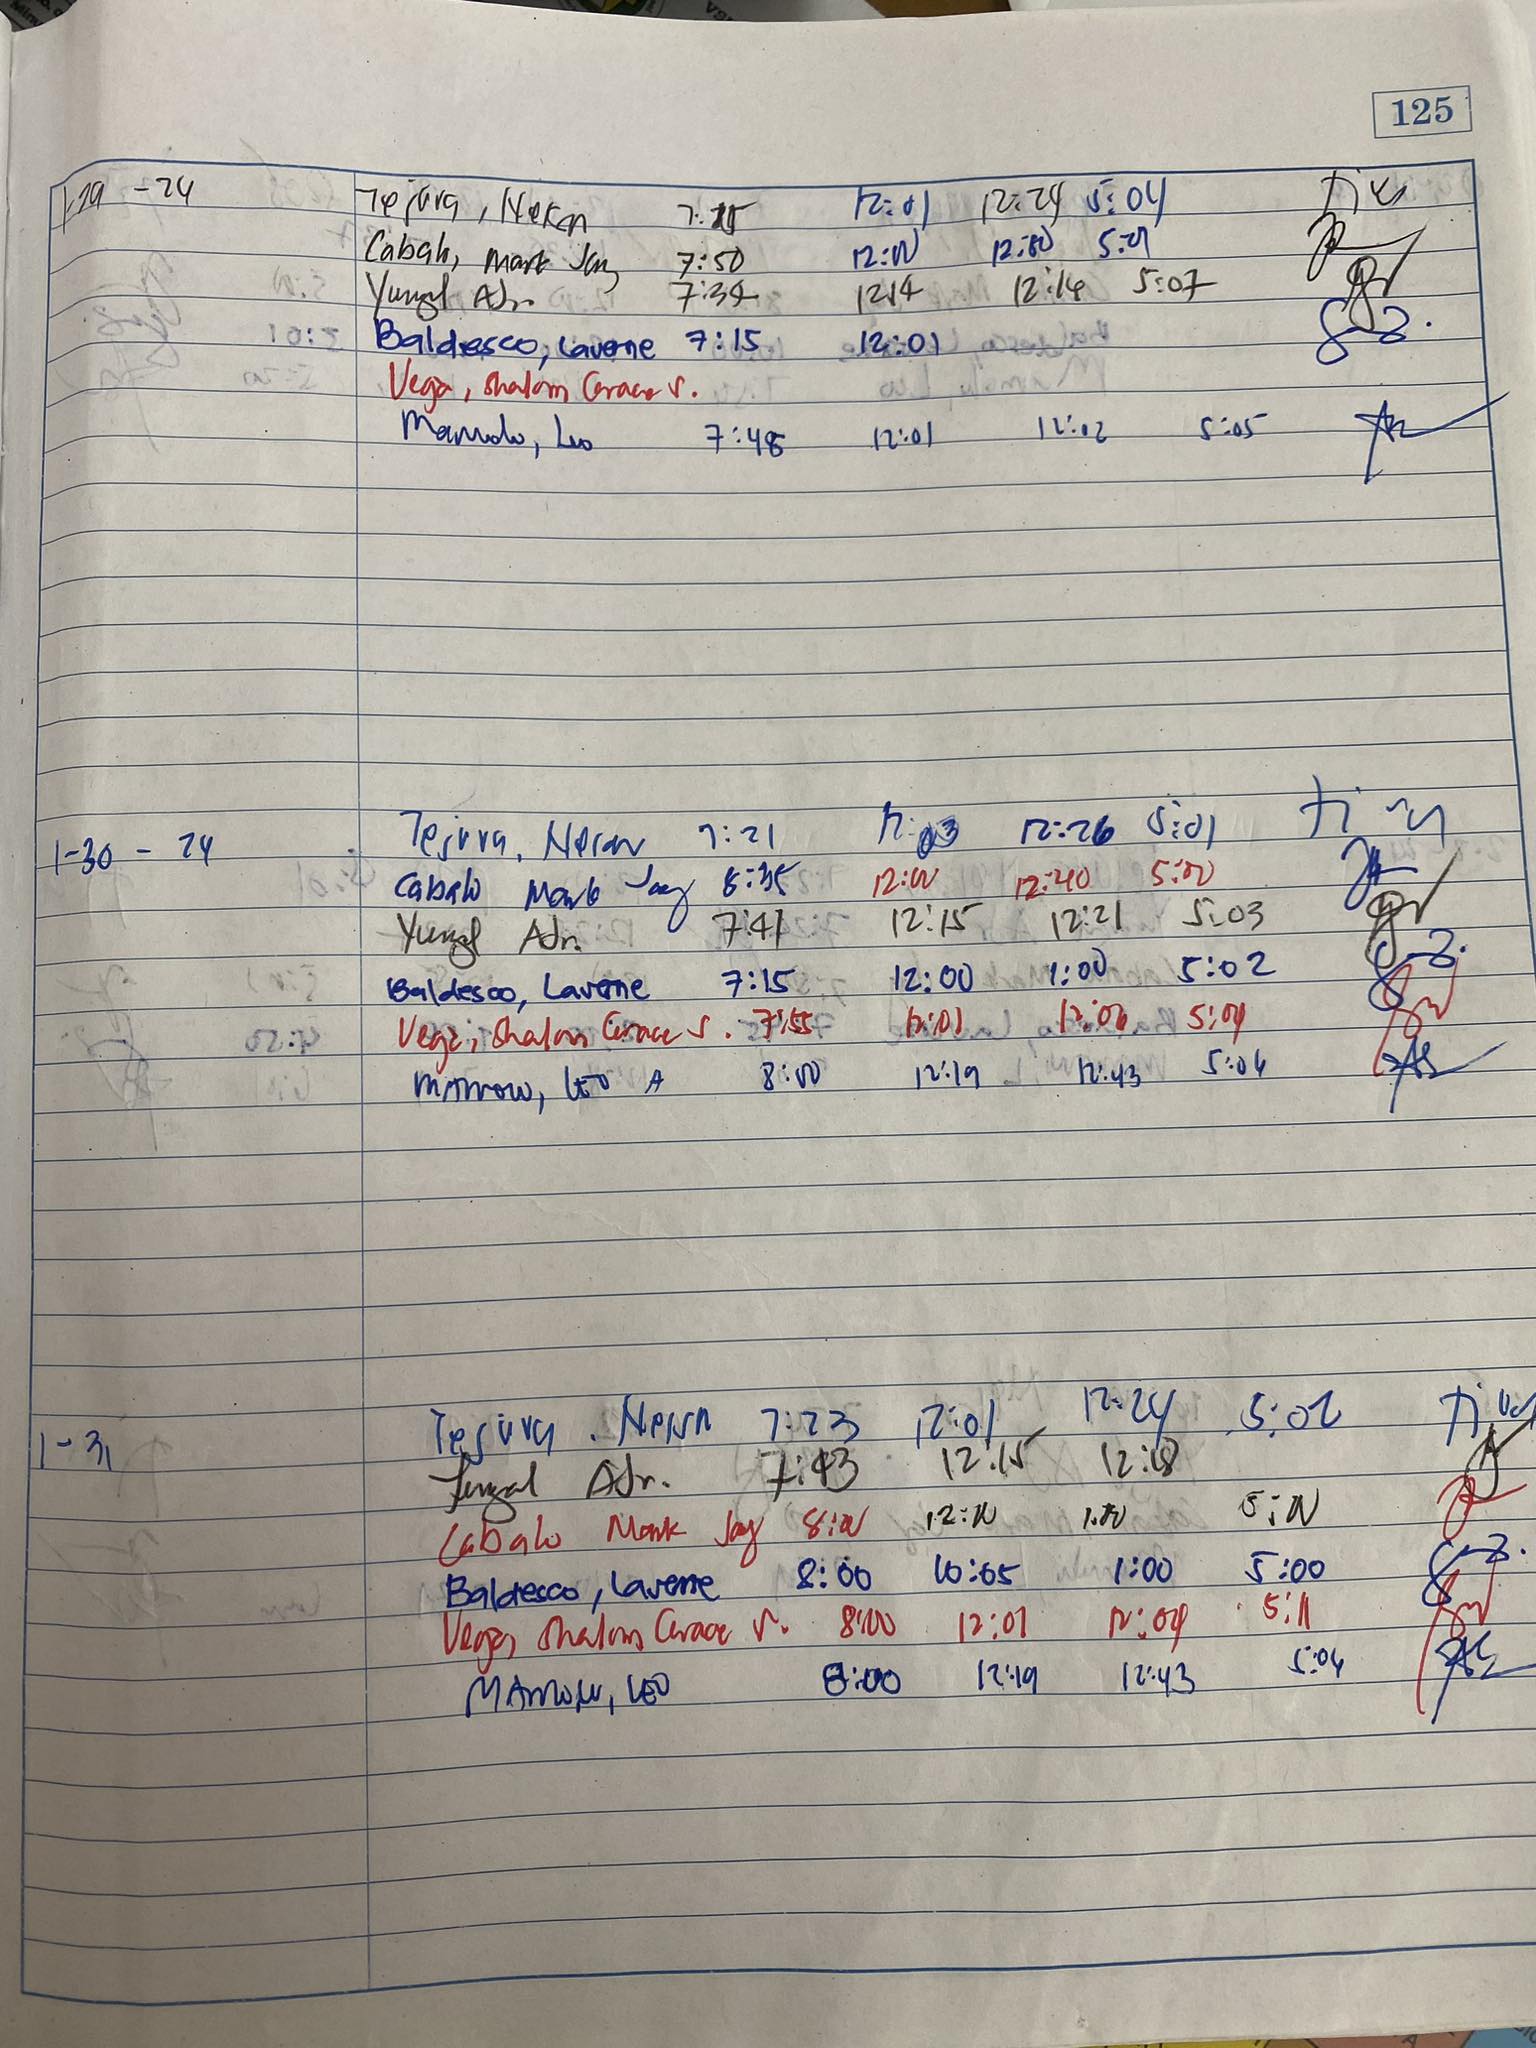 125
1-29 - 24 Tejura, 12:01 12:24 5:04
Cabalo, Mark Jay 7:50 12:00 12:00 5:01
Yungal Adr. 7:34 1214 12:14 5:07
Baldesco, Laverne 7:15 12:01
Vega, Shalom Grace V.
Leo 7:48 12:01 12:02 5:05
1-30 - 24 Tejura, 7:21 12:03 12:26 5:01
Cabalo Mark Jay 8:35 12:00 12:40 5:00
Yungal Adr. 7:41 12:15 12:21 5:03
Baldesco, Laverne 7:15 12:00 1:00 5:02
Vega, Shalom Grace V. 7:55 12:01 5:04
LEO A 8:00 12:19 12:43 5:04
1-31 Tejura 7:23 12:01 12:24 5:02
Yungal Adr. 7:43 12:15 12:18
Cabalo Mark Jay 8:00 12:00 1:00 5:00
Baldesco, Laverne 8:00 10:05 1:00 5:00
Vega, Shalom Grace V. 8:00 12:01 12:04 5:11
LEO 8:00 12:19 12:43 5:04